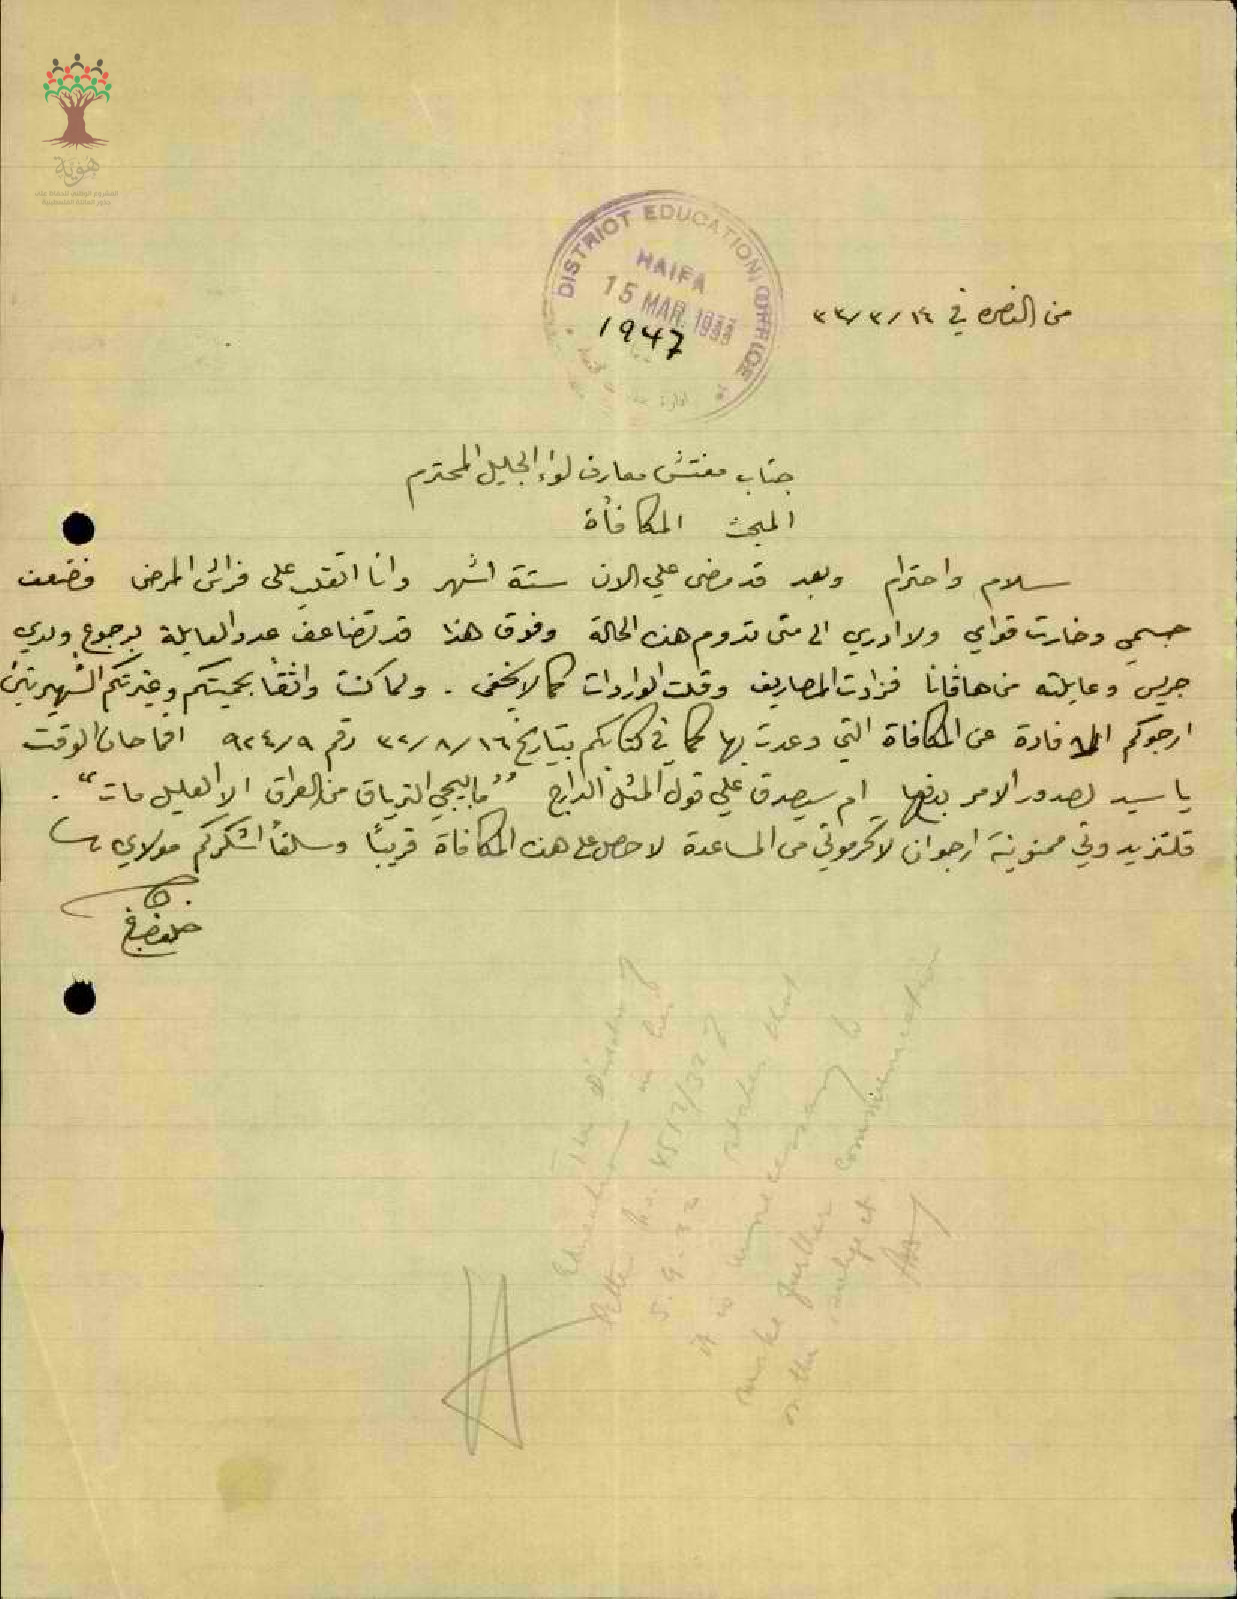 هوية
المشروع الوطني للحفاظ على
جذور العائلة الفلسطينية
DISTRICT EDUCATION OFFICE
HAIFA
15 MAR 1933
1947
من الناصرة في ١٤/٣/٣٣
جناب مفتش معارف لواء الجليل المحترم
المبحث المكافأة
سلام واحترام وبعد قد مضى علي الان ستة اشهر وانا اتقلب على فراش المرض فضعف
جسمي وخارت قواي ولا ادري الى متى تدوم هذه الحالة وفوق هذا قد تضاعف عدد العايلة برجوع ولدي
جريس وعايلته من هافانا فزادت المصاريف وقلت الواردات كما لا يخفى . ولما كنت واثقاً بحميتكم وغيرتكم الشهيرتين
ارجوكم الافادة عن المكافاة التي وعدت بها كما في كتابكم بتاريخ ١٦/٨/٣٢ رقم ٩٢٤/٩ افما حان الوقت
يا سيد لصدور الامر بدفعها ام سيصدق علي قول المثل الدارج "ما بيجي الترياق من العراق الا العليل مات" .
فلتزيدوني ممنونية ارجو ان لا تحرموني من المساعدة لاحصل على هذه المكافاة قريباً وسلفاً اشكركم مولاي
The Director of
Education in his
letter No. 4512/32 of
5.9.32 states that
it is unnecessary to
make further communication
on the subject